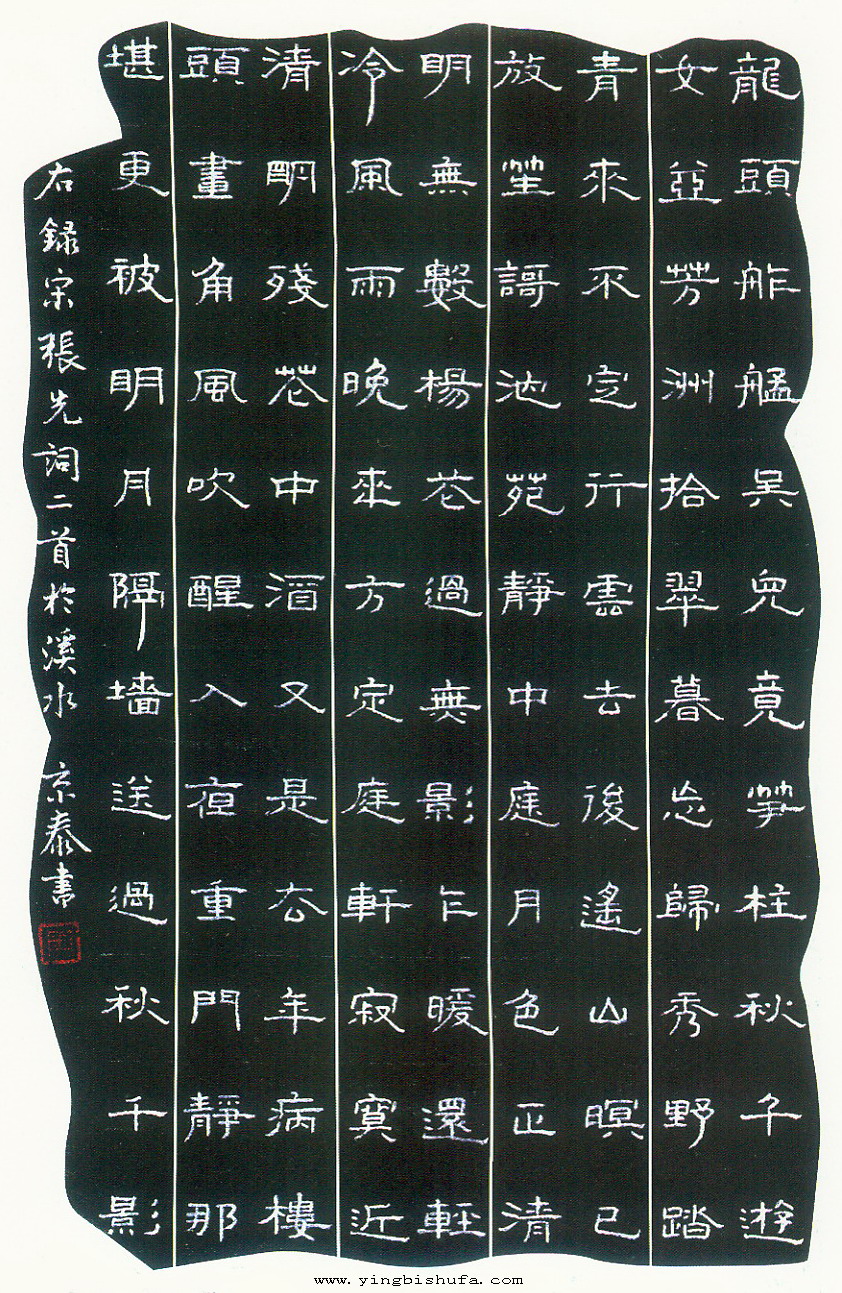 龍頭舴艋吳兒竟笋柱秋千遊
女並芳洲拾翠暮忘歸秀野踏
青來不定行雲去後遙山暝已
放笙謌池苑靜中庭月色正清
明無數楊花過無影乍暖還輕
冷風雨晚來方定庭軒寂寞近
清明殘花中酒又是去年病樓
頭畫角風吹醒入夜重門靜那
堪更被明月隔墻送過秋千影
右録宋張先詞二首於溪水 京泰書
www.yingbishufa.com